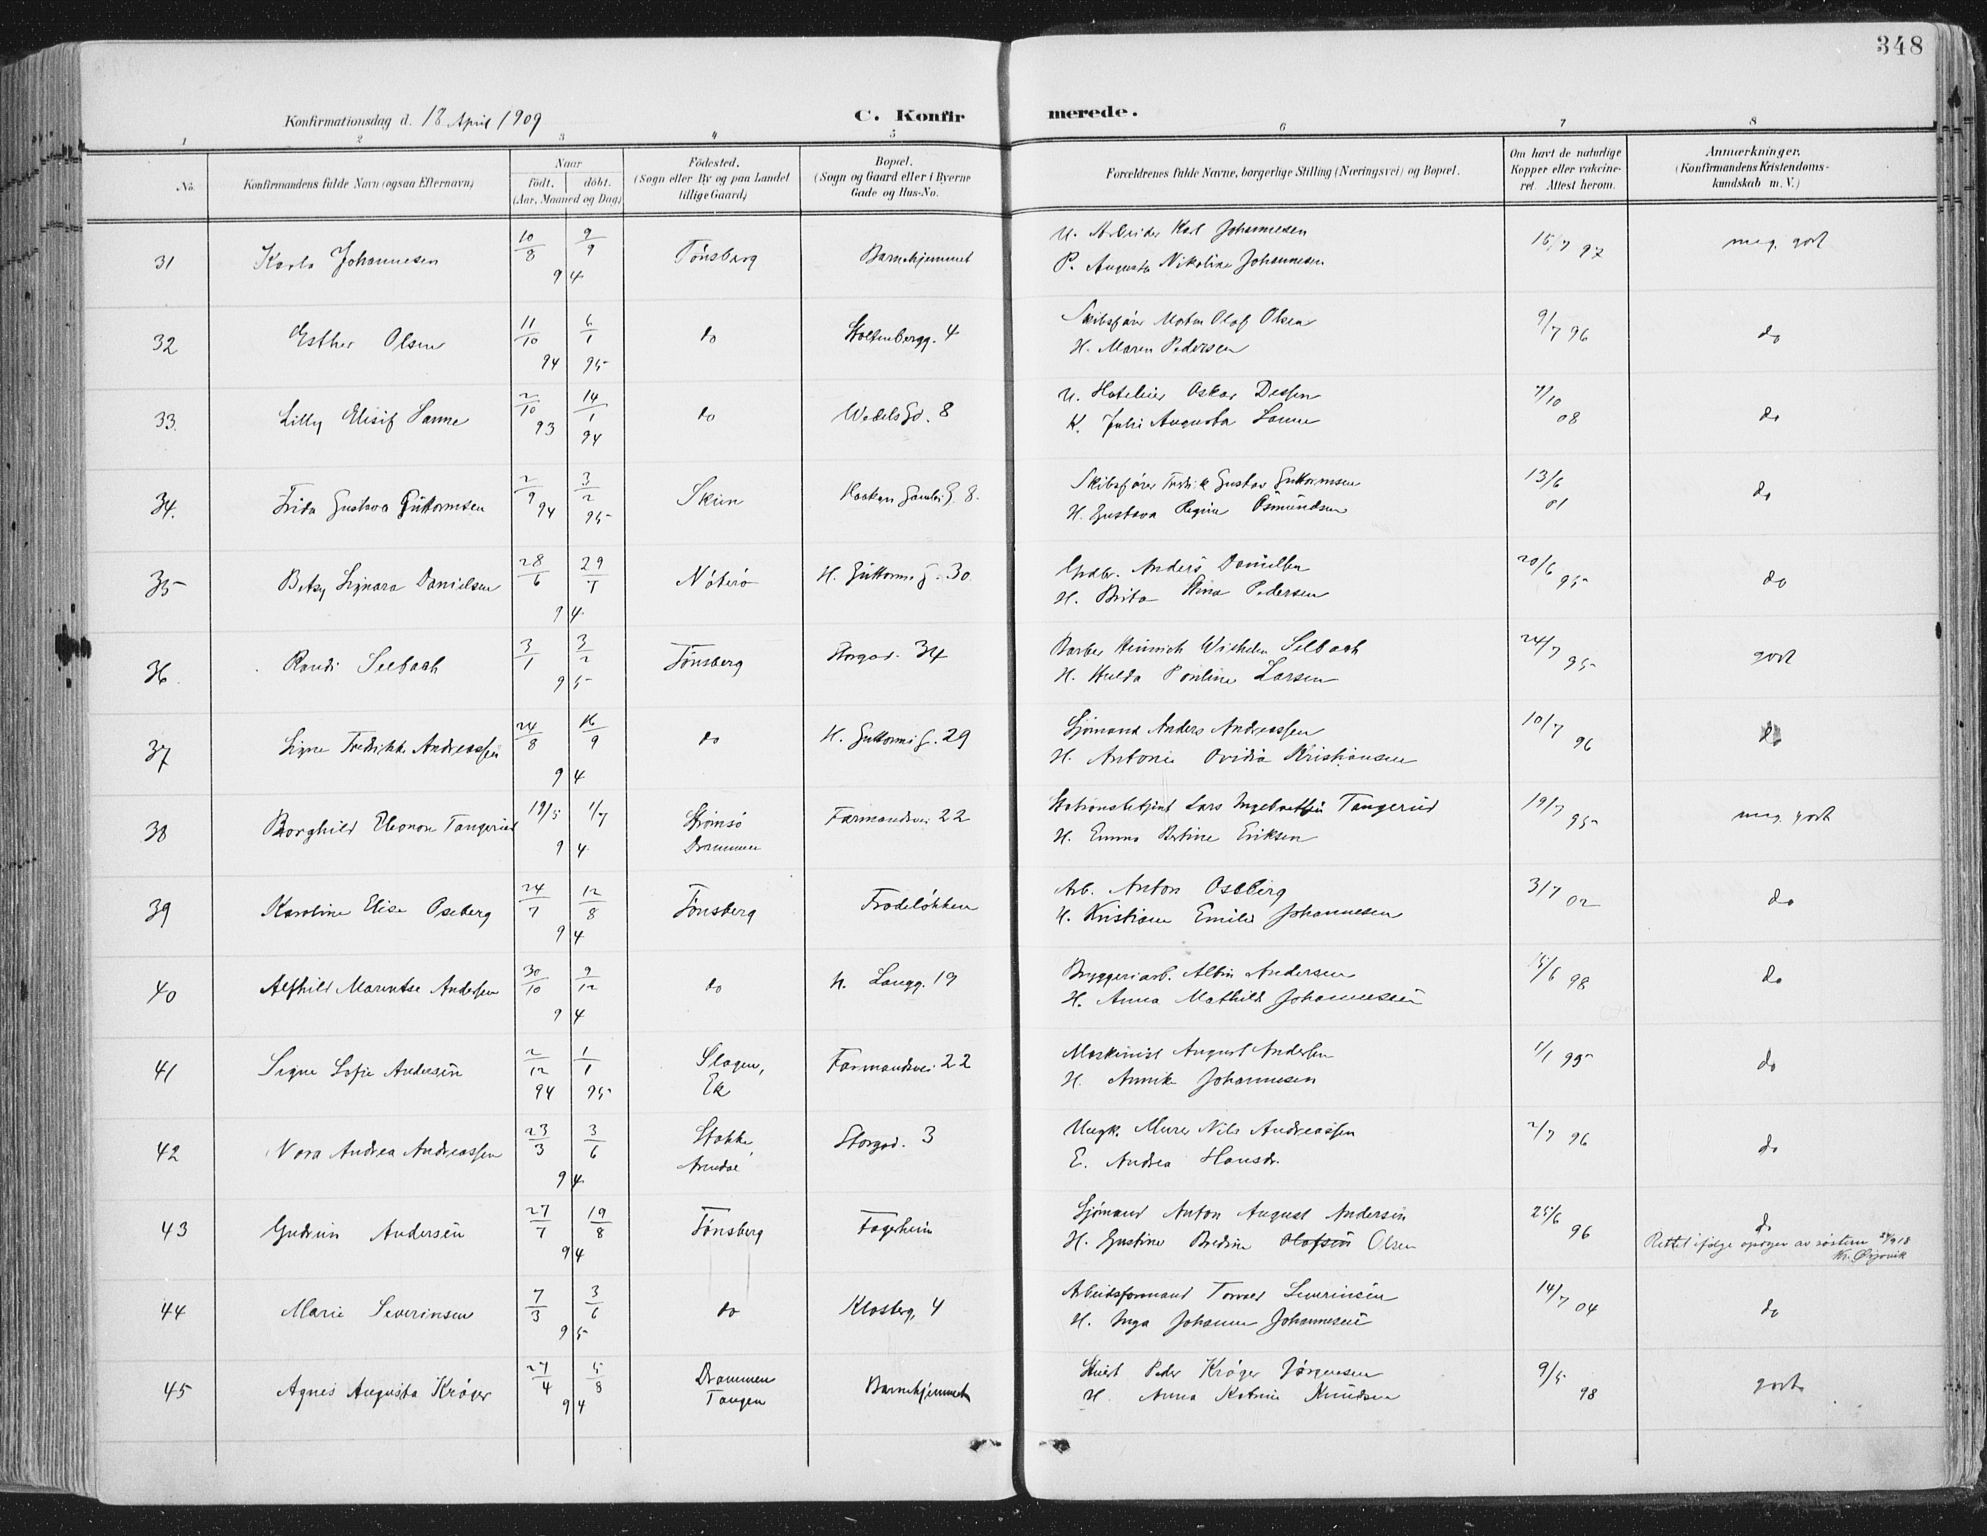 348
Konfirmationsdag d. 18 April 1909
C. Konfirmerede.
1 2 3 4 5 6 7 8
No.
Konfirmandens fulde Navn (ogsaa Efternavn)
Naar
födt. döbt.
(Aar, Maaned og Dag)
Födested.
(Sogn eller By og paa Landet
tillige Gaard)
Bopæl.
(Sogn og Gaard eller i Byerne
Gade og Hus-No.
Forældrenes fulde Navne, borgerlige Stilling (Næringsvei) og Bopæl.
Om havt de naturlige
Kopper eller vakcine-
ret. Attest herom.
Anmærkninger.
(Konfirmandens Kristendoms-
kundskab m. V.)
31 Karla Johannesen 10/8 9/9 94 Tønsberg Barnehjemmet
U. Arbeider Karl Johannesen
P. Augusta Nikoline Johannesen
15/7 97 meg. godt
32 Esther Olsen 11/10 94 6/1 95 do Stoltenbergg. 4
Skibsfører Olaf Olsen
H. Maren Pedersen
9/7 96 do
33. Lilly Elisif Sanne 2/10 93 14/1 94 do Wedels Gd. 8
U. Hotelier Oskar Dessen
K. Julie Augusta Sanne
7/10 08 do
34. Frida Gustava Guttormsen 2/9 94 3/2 95 Skien 8.
Skibsfører Fredrik Gustav Guttormsen
H. Gustava Regine Osmundsen
13/6 01 do
35 Betsy Signora Danielsen 28/6 29/7 94 Nøterø H. Guttormsg. 30.
Gdbr. Anders Danielsen
H. Brita Stina Pedersen
20/6 95 do
36. Randi Selbach 3/1 3/2 95 Tønsberg Storgad. 34
Barber Heinrich Wilhelm Selbach
H. Hulda Pauline Larsen
24/7 95 godt
37 Signe Fredrikke Andreassen 24/8 16/9 94 do H. Guttormsg. 29
Sjømand Anders Andreassen
H. Antonie Ovidia Kristiansen
10/7 96 do
38 Borghild Eleonore Tangerud 19/5 1/7 94 Strømsø Farmandsvei 22
Drammen
Stationsbetjent Lars Ingebretsen Tangerud
H. Emma Bertine Eriksen
19/7 95 meg. godt
39 Karoline Elise Oseberg 24/7 12/8 94 Tønsberg Frodeløkken
Arb. Anton Oseberg
H. Kristiane Emilie Johannesen
3/7 02 do
40 Alfhild Marentse Andersen 30/10 9/12 94 do N. Langg. 19
Bryggeriarb. Albin Andersen
H. Anna Mathilde Johannesen
15/6 98 do
41 Signe Sofie Andersen 2/12 94 1/1 95 Slagen, Farmandsvei 22
Ek
Maskinist August Andersen
H. Annik Johannesen
1/1 99 do
42 Nora Andrea Andreassen 23/3 3/6 94 Stokke, Storgad. 3
Arendal
Ungk. Murer Nils Andreassen
E. Andrea Hansdr.
2/7 96 do
43 Gudrun Andersen 27/7 19/8 94 Tønsberg Fagerheim
Sjømand Anton August Andersen
H. Gustine Bredine Olafsen Olsen
25/6 96 do
Rettet ifølge opgave av søsteren 24/9 18
Kr. Gjøvik
44 Marie Severinsen 7/3 3/6 95 do Klosterg. 4
Arbeidsformand Torvald Severinsen
H. Inga Johanne Johannesen
14/7 04 do
45 Agnes Augusta Krøger 27/4 5/8 94 Drammen Barnehjemmet
Tangen
Peder Krøger Jørgensen
H. Anna Katrine Knudsen
9/5 98 godt